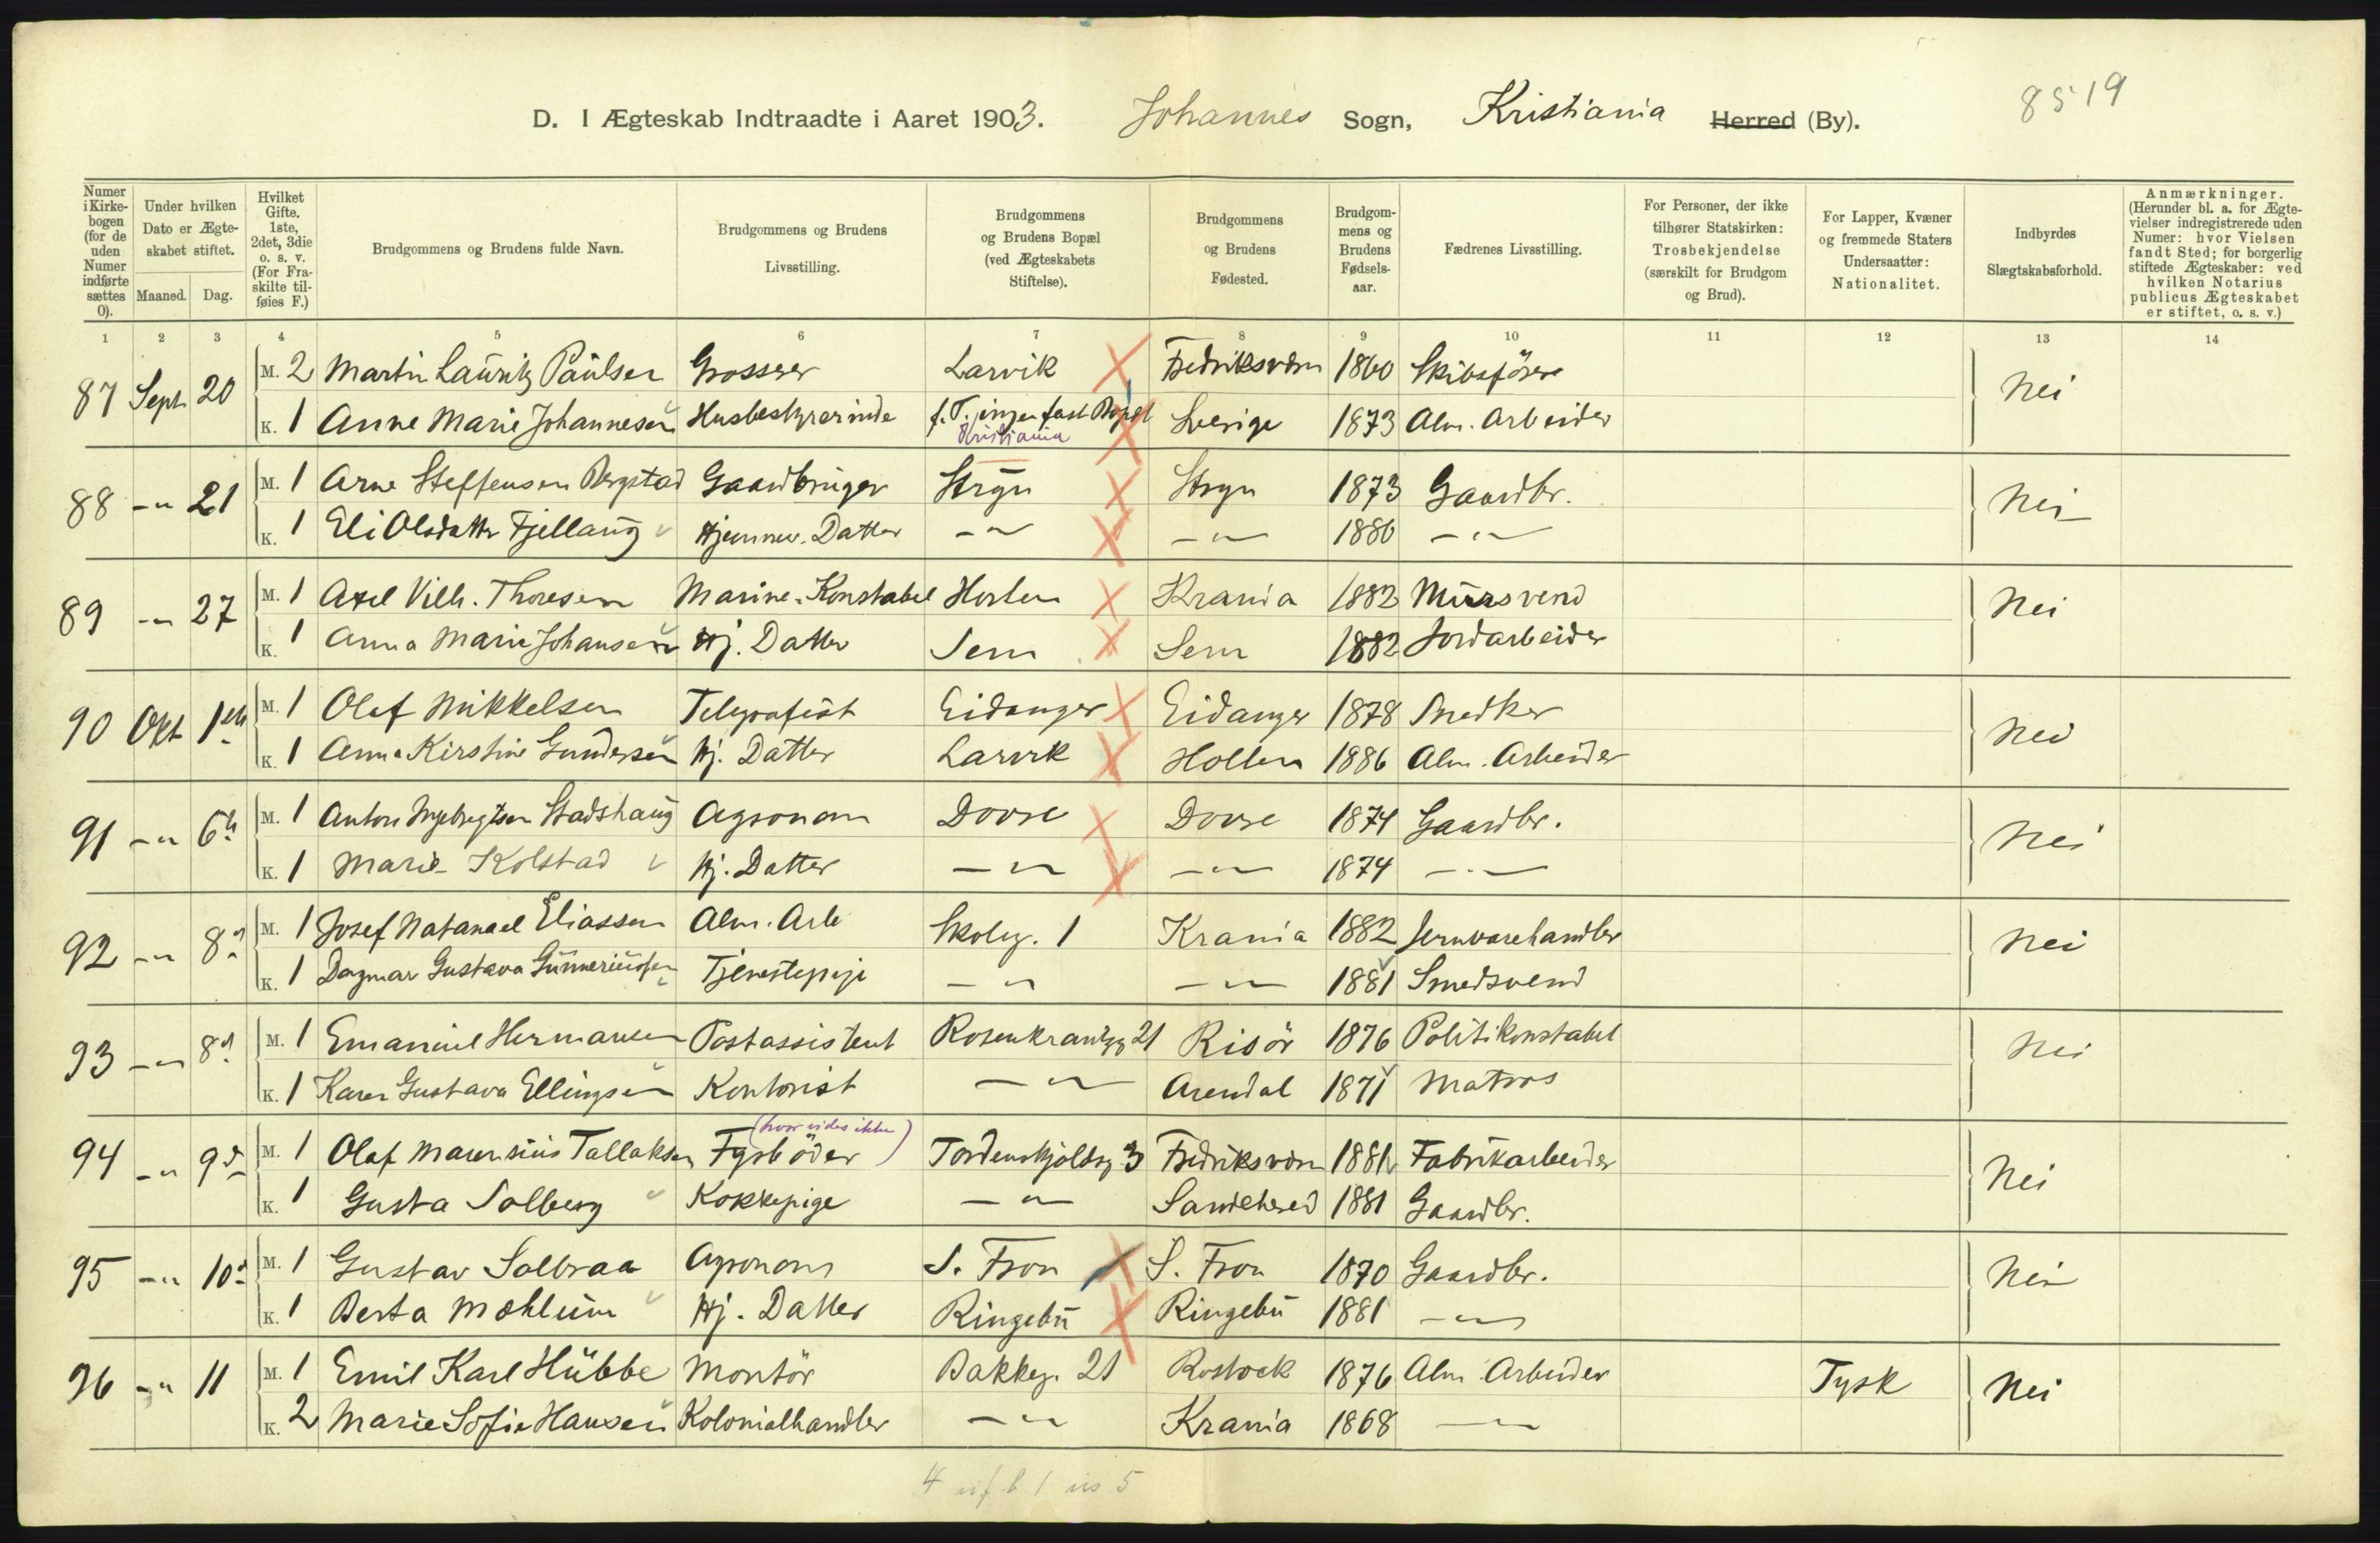 8519
D. I Ægteskab Indtraadte i Aaret 1903. Johannes Sogn, Kristiania Herred (By).
Numer i Kirke-bogen (for de uden Numer indførte sættes 0). Under hvilken Dato er Ægte-skabet stiftet. Maaned. Dag. Hvilket Gifte. 1ste, 2det, 3die o. s. v. (For Fra-skilte til-føies F.) Brudgommens og Brudens fulde Navn. Brudgommens og Brudens Livsstilling. Brudgommens og Brudens Bopæl (ved Ægteskabets Stiftelse). Brudgommens og Brudens Fødested. Brudgom-mens og Brudens Fødsels-aar. Fædrenes Livsstilling. For Personer, der ikke tilhører Statskirken: Trosbekjendelse (særskilt for Brudgom og Brud). For Lapper, Kvæner og fremmede Staters Undersaatter: Nationalitet. Indbyrdes Slægtskabsforhold. Anmærkninger. (Herunder bl. a. for Ægte-vielser indregistrerede uden Numer: hvor Vielsen fandt Sted; for borgerlig stiftede Ægteskaber: ved hvilken Notarius publicus Ægteskabet er stiftet, o. s. v.)
1 2 3 4 5 6 7 8 9 10 11 12 13 14
87 Sept. 20 M. 2 Martin Lauritz Paulsen Grosserer Larvik Fredriksværn 1860 Skibsfører Nei
K. 1 Anne Marie Johannesen Husbestyrerinde f. T. ingen fast Bopæl Sverige 1873 Alm. Arbeider
Kristiania
88 -"- 21 M. 1 Arne Steffensen Bergstad Gaardbruger Stryn Stryn 1873 Gaardbr. Nei
K. 1 Eli Olsdatter Fjellaug Hjemmev. Datter -"- -"- 1880 -"-
89 -"- 27 M. 1 Axel Vilh. Thoresen Marine-Konstabel Horten Krania 1882 Mursvend Nei
K. 1 Anna Marie Johansen Hj. Datter Sem Sem 1882 Jordarbeider
90 Okt 1ste M. 1 Olaf Mikkelsen Telegrafist Eidanger Eidanger 1878 Snedker Nei
K. 1 Anna Kirstine Gundersen Hj. Datter Larvik Hollen 1886 Alm. Arbeider
91 -"- 6te M. 1 Anton Ingebregtsen Stadshaug Agronom Dovre Dovre 1874 Gaardbr. Nei
K. 1 Marie Kolstad Hj. Datter -"- -"- 1874 -"-
92 -"- 8de M. 1 Josef Natanael Eliassen Alm. Arb Skoleg. 1 Krania 1882 Jernvarehandler Nei
K. 1 Dagmar Gustava Gunneriussen Tjenestepige -"- -"- 1881 Smedsvend
93 -"- 8de M. 1 Emanuel Hermansen Postassistent Rosenkrantzg 21 Risör 1876 Politikonstabel Nei
K. 1 Karen Gustava Ellingsen Kontorist -"- Arendal 1871 Matros
(hvor vides ikke)
94 -"- 9de M. 1 Olaf Marensius Tallaksen Fyrbøder Tordenskjoldsg 3 Fredriksværn 1881 Fabrikarbeider Nei
K. 1 Gusta Solberg Kokkepige -"- Sandeherred 1881 Gaardbr.
95 -"- 10de M. 1 Gustav Solbraa Agronom S. Fron S. Fron 1870 Gaardbr. Nei
K. 1 Berta Mæhlum Hj. Datter Ringebu Ringebu 1881 -"-
96 -"- 11 M. 1 Emil Karl Hübbe Montör Bakkeg. 21 Rostock 1876 Alm. Arbeider Tysk Nei
K. 2 Marie Sofie Hansen Kolonialhandler -"- Krania 1868 -"-